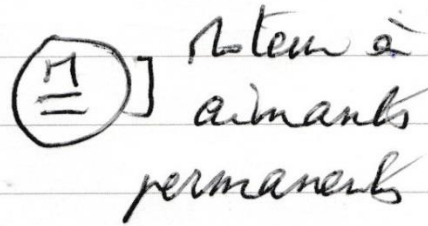 M
Moteur à
aimants
permanents